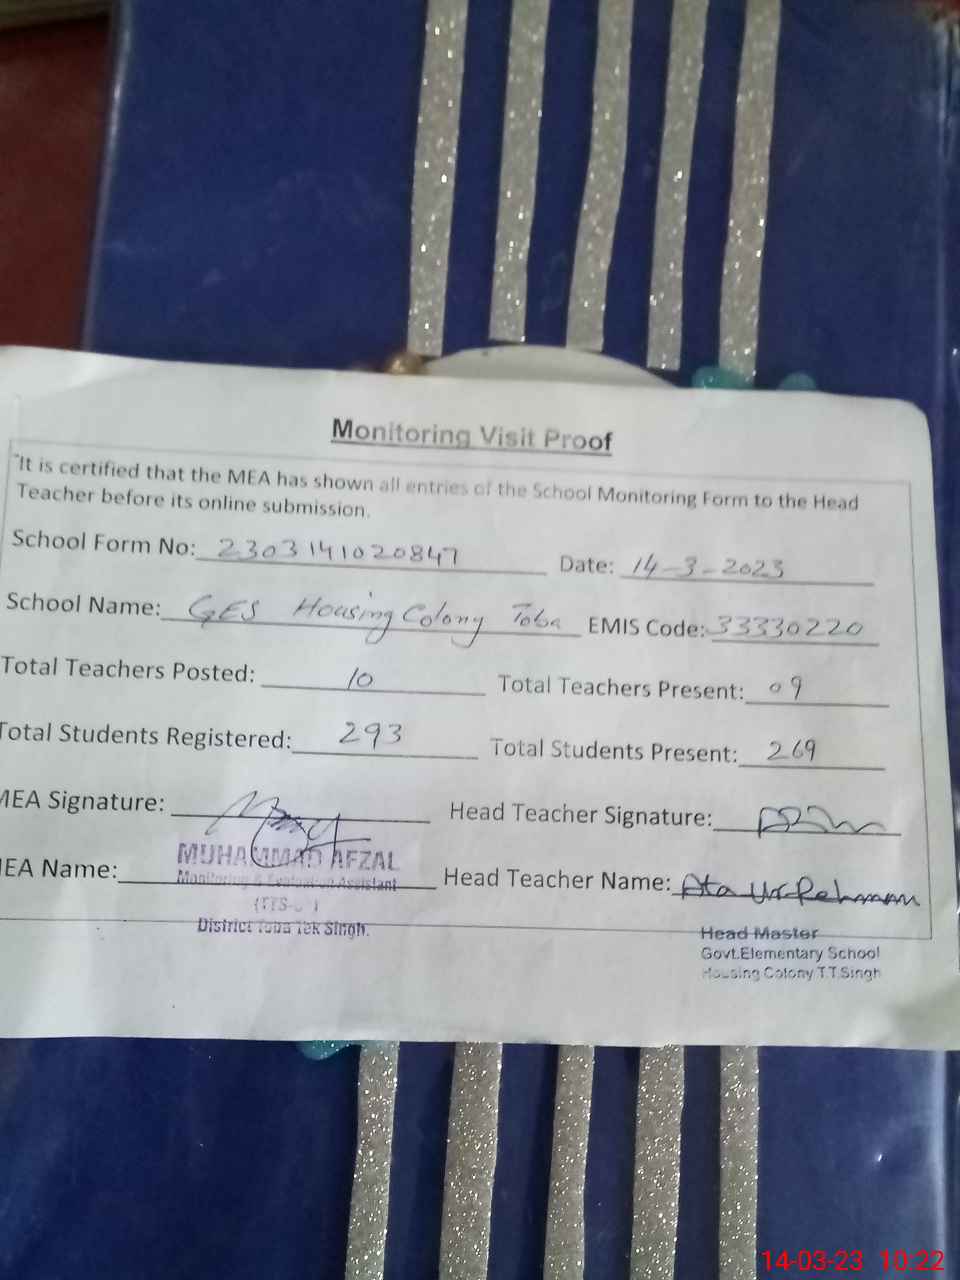 Monitoring Visit Proof
"It is certified that the MEA has shown all entries of the School Monitoring Form to the Head
Teacher before its online submission.
School Form No: 2303141020847 Date: 14-3-2023
School Name: GES Housing Colony Toba EMIS Code: 33330220
Total Teachers Posted: 10 Total Teachers Present: 09
Total Students Registered: 293 Total Students Present: 269
MEA Signature: Head Teacher Signature:
MUHAMMAD AFZAL
MEA Name: Head Teacher Name: Ata Ur Rehman
Monitoring & Evaluation Assistant
District Toba Tek Singh.
Head Master
Govt.Elementary School
Housing Colony T.T.Singh
14-03-23 10:22